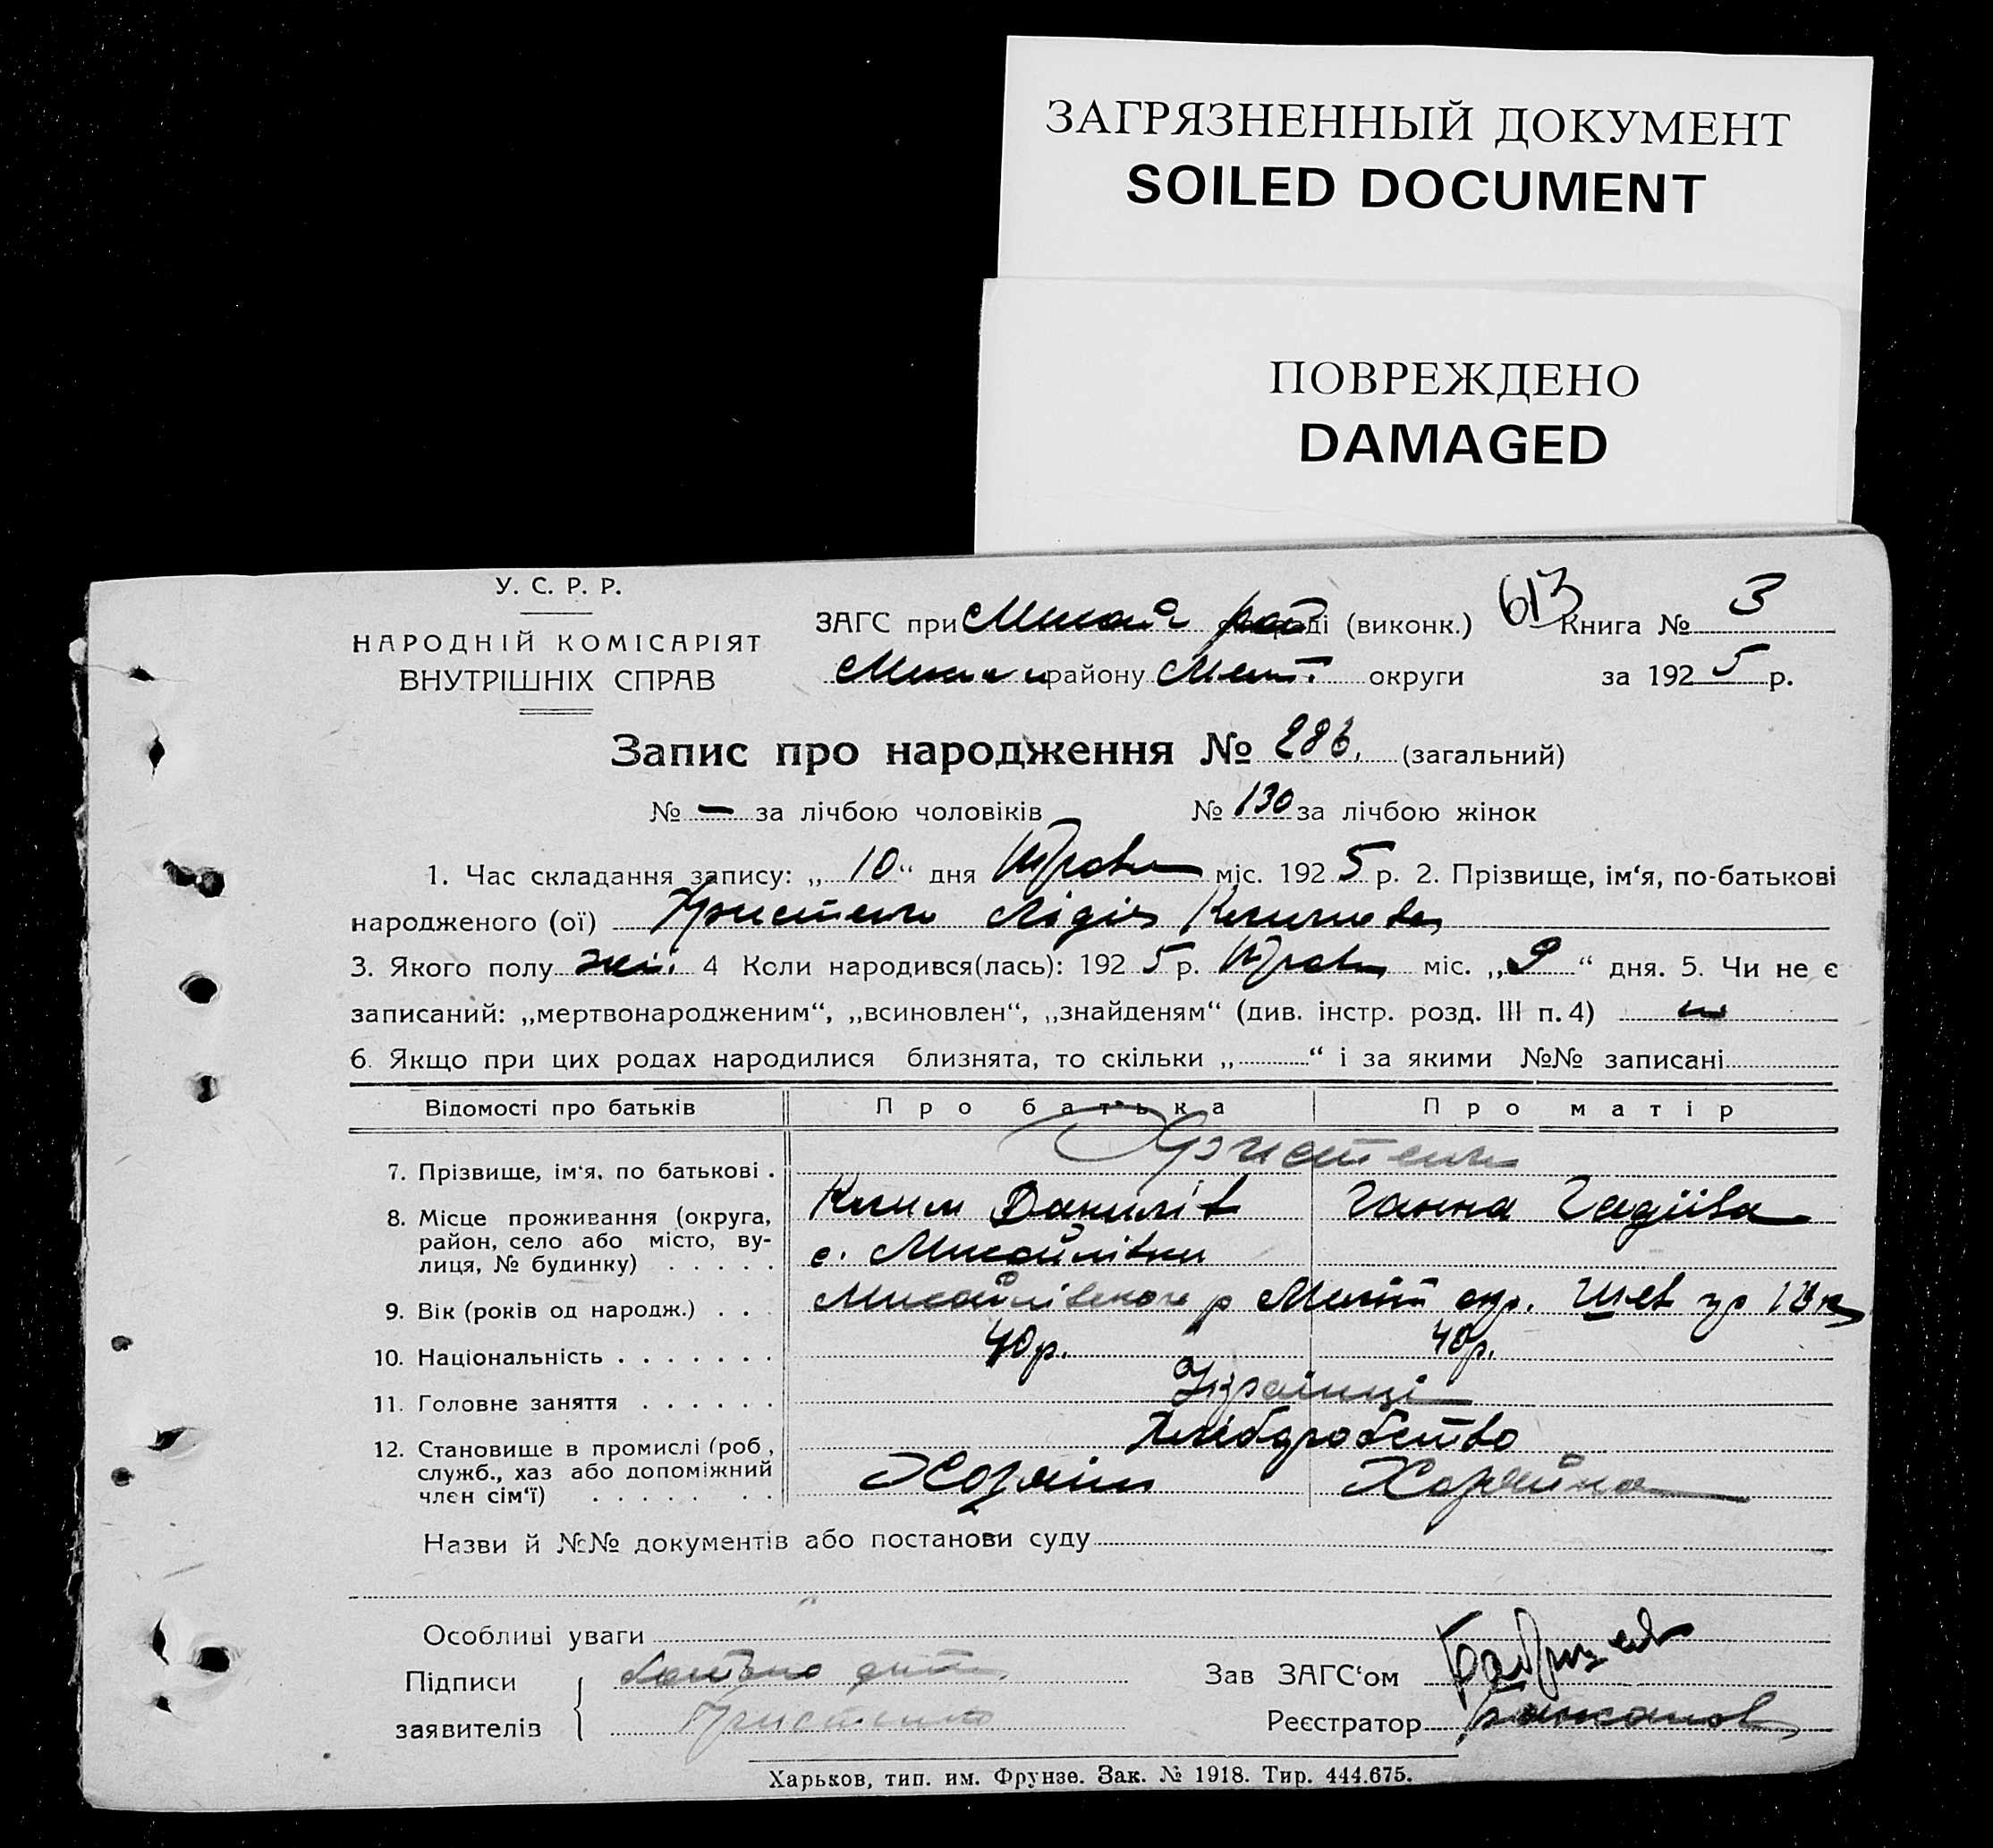 ЗАГРЯЗНЕННЫЙ ДОКУМЕНТ
SOILED DOCUMENT
ПОВРЕЖДЕНО
DAMAGED
У. С. Р. Р.
НАРОДНІЙ КОМІСАРІЯТ
ВНУТРІШНІХ СПРАВ
613
ЗАГС при рай (виконк.) Книга № 3
району Меліт. округи за 1925 р.
Запис про народження № 286. (загальний)
№ — за лічбою чоловіків № 130 за лічбою жінок
1. Час складання запису: „10“ дня Травня міс. 1925 р. 2. Прізвище, ім‘я, по-батькові
народженого (ої) Христенко Лідія Климова
3. Якого полу жін. 4 Коли народився(лась): 1925 р. Травня міс. „9“ дня. 5. Чи не є
записаний: „мертвонародженим“, „всиновлен“, „знайденям“ (див. інстр. розд. III п. 4) ні
6. Якщо при цих родах народилися близнята, то скільки „ “ і за якими №№ записані
Відомості про батьків Про батька Про матір
7. Прізвище, ім‘я, по батькові . Христенко
Клим Данилів Ганна
8. Місце проживання (округа, район, село або місто, вулиця, № будинку) . . . . . с. Михайлівки
Михайлівського р Меліт окр.
9. Вік (років од народж.) . . 40р. 40р.
10. Національність . . . . . . . Українці
11. Головне заняття . . . . . . Хліборобство
12. Становище в промислі (роб., служб., хаз або допоміжний член сім‘ї) . . . . . . . Хозяїн Хозяйка
Назви й №№ документів або постанови суду
Особливі уваги
Підписи
заявителів Христенко
Зав ЗАГС‘ом
Реєстратор
Харьков, тип. им. Фрунзе. Зак. № 1918. Тир. 444.675.